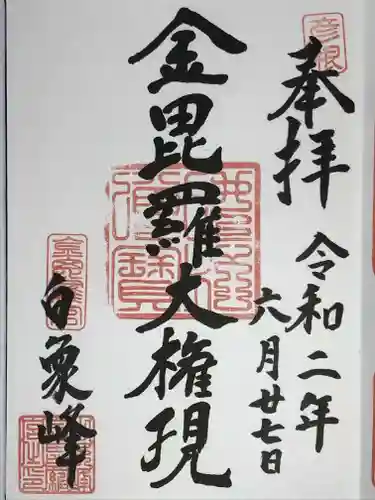 彦根
奉拝
令和二年
六月廿七日
金毘羅大権現
白象峰